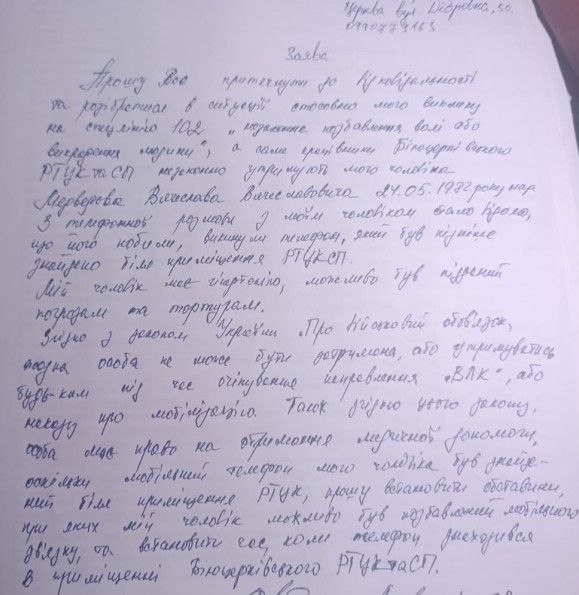 Церква вул Дібровна, 50.
0990779163
Заява
Прошу Вас притягнути до відповідальності
та розібратися в ситуації стосовно мого виклику
на спецлінію 102 "незаконне позбавлення волі або
викрадення людини", а саме працівники Білоцерківського
РТЦК та СП незаконно утримують мого чоловіка
Медведєва Вячеслава Вячеславовича 24.05.1982 року нар.
З телефонної розмови з моїм чоловіком стало відомо,
що його побили, викинули телефон, який був пізніше
знайдено біля приміщення РТЦКСП.
Мій чоловік має гіпертонію, можливо був підданий
погрозам та тортурам.
Згідно з законом України Про військовий обов'язок,
жодна особа не може бути затримана, або утримуватись
будь-ким під час очікування направлення "ВЛК", або
наказу про мобілізацію. Також згідно цього закону,
особа має право на отримання медичної допомоги,
оскільки мобільний телефон мого чоловіка був знайде-
ний біля приміщення РТЦК, прошу встановити обставини,
при яких мій чоловік можливо був позбавлений мобільного
зв'язку, та встановити час, коли телефон знаходився
в приміщенні Білоцерківського РТЦК та СП.